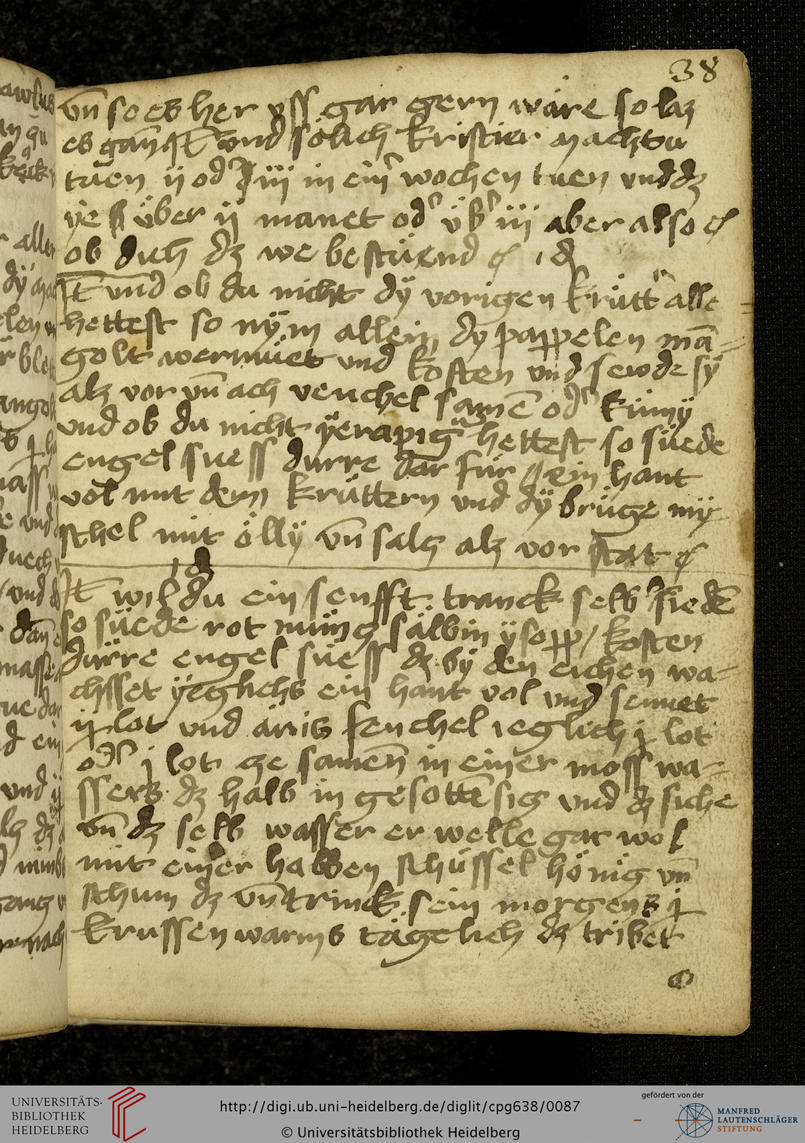 38
vn̄ so es her vss gar gern wäre so laz
es gan Jt̄ vnd sölich kristier machtu
tuen ij od' iij in ein' wochen tuen vnd dz
ye über ij manet od' üb' iij aber also
ob dich dz we bestüend
Jt̄ vnd ob du nicht dÿ vorigen krütt' alle
hettest so nÿm allein dÿ pappelen mā=
golt wermüet vnd kosten vnd sewde sÿ
alz vor vn̄ ach venchel samē od' kümÿ
vnd ob du nicht ÿerapig hettest so süede
engel suess durre dar für ein hant
vol mit dem krüttern vnd dÿ brüge mÿ
schel mit öllÿ vn̄ salz alz vor stat
Jt̄ wil du ein senfft tranck selb' siedē
so süede rot müng sälbin ÿsopp / kosten
dürre engel süess dz bÿ den eichen wa=
chsset ÿeglichs ein hant vol vnd sennet
ij lot vnd änis fenchel ieglich j lot
od' j lot ze samen̄ in einer moss wa=
ssers dz halb in gesottē sig vnd dz siche
vn̄ dz selb wasser er welle gar wol
mit einer halben schüssel hönig vn̄
schum dz vn̄ trinck sein morgens j
krussen warms tägelich dz tribet
all
UNIVERSITÄTS-
BIBLIOTHEK
HEIDELBERG
http://digi.ub.uni-heidelberg.de/diglit/cpg638/0087
© Universitätsbibliothek Heidelberg
gefördert von der
MANFRED
LAUTENSCHLÄGER
STIFTUNG